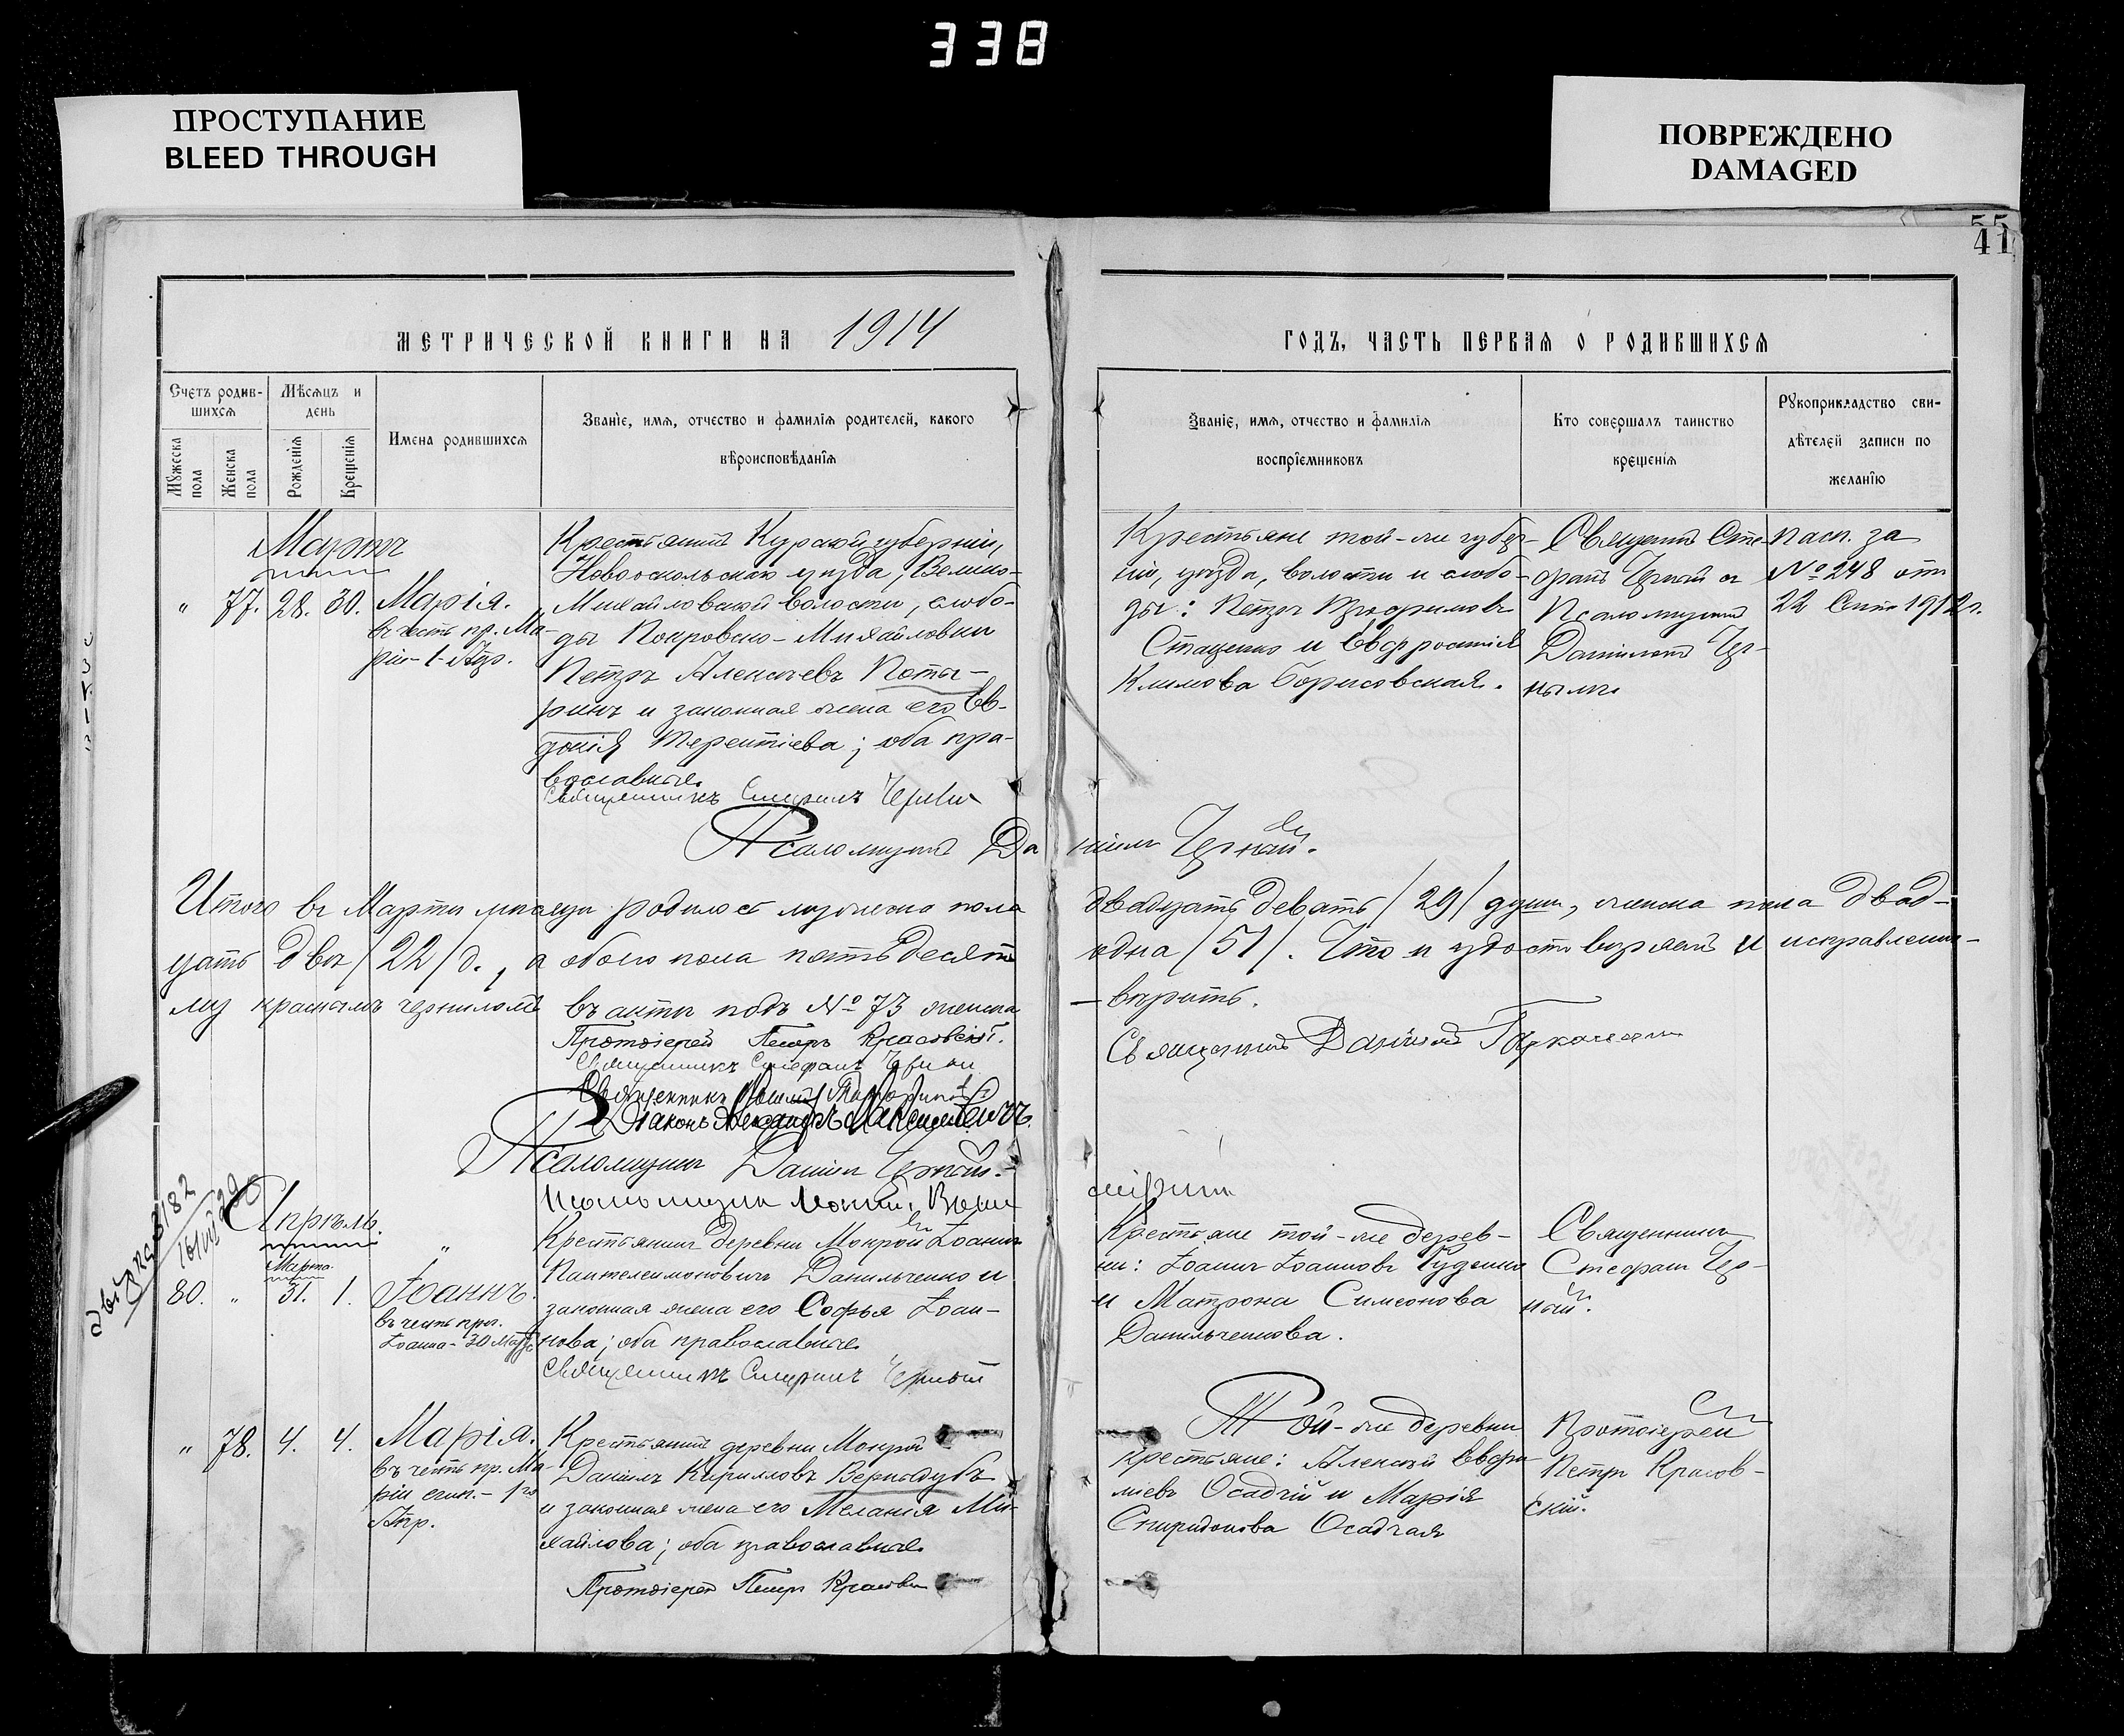 338
ПРОСТУПАНИЕ
BLEED THROUGH
ПОВРЕЖДЕНО
DAMAGED
55
41
МЕТРИЧЕСКОЙ КНИГИ НА 1914
ГОДЪ, ЧАСТЬ ПЕРВАЯ О РОДИВШИХСЯ
Счетъ родив-
шихся
Мужеска пола
Женска пола
Мѣсяцъ и
день
Рожденія
Крещенія
Имена родившихся
Званіе, имя, отчество и фамилія родителей, какого
вѣроисповѣданія
Званіе, имя, отчество и фамилія
воспріемниковъ
Кто совершалъ таинство
крещенія
Рукоприкладство сви-
дѣтелей записи по
желанію
Мартъ
" 77. 28. 30. Марія.
въ честь пр. Ма-
ріи - 1 - Апр.
Крестьянинъ Курской губерніи,
Новооскольскаго уѣзда, Велико-
Михайловской волости, слобо-
ды Покровско-Михайловки
Петръ Алексѣевъ Поты-
ринъ и законная жена его Ев-
докія Терентіева; оба пра-
вославные.
Священникъ Стефанъ Черный
Крестьяне той-же губер-
ніи, уѣзда, волости и слобо-
ды: Петръ Трофимовъ
Стаценко и Евфросинія
Климова Борисовская.
Священникъ Сте-
фанъ Черный съ
Псаломщикомъ
Даніиломъ Чер-
нымъ.
Пасп. за
№ 248 отъ
22 Сент. 1912 г.
Псаломщикъ Даніилъ Черный.
Итого въ Мартѣ мѣсяцѣ родилось мужеска пола двадцать девять /29/ душъ, женска пола двад-
цать двѣ /22/ д., а обоего пола пятьдесятъ одна /51/. Что и удостовѣряемъ и исправленно-
му красными чернилами въ актѣ подъ № 73 женска - вѣрить.
Протоіерей Петръ Красовскій.
Священникъ Даніилъ
Священникъ Стефанъ Черный
Священникъ
Діаконъ Александръ Максимовичъ
Псаломщикъ Даніилъ Черный.
Псаломщикъ
Апрѣль.
Марта
80. " 31. 1. Іоаннъ.
въ честь преп.
Іоанна - 30 Марта
Крестьянинъ деревни Мокрой Іоаннъ
Пантелеимоновичъ Данильченко и
законная жена его Софья Іоан-
нова; оба православные.
Священникъ Стефанъ Черный
Крестьяне той-же дерев-
ни: Іоаннъ Іоанновъ Руденко
и Матрона Симеонова
Данильченкова.
Священникъ
Стефанъ Чер-
ный.
" 78. 4. 4. Марія.
въ честь пр. Ма-
ріи егип. - 1го
Апр.
Крестьянинъ деревни Мокрой
Даніилъ Кирилловъ Вернидубъ
и законная жена его Меланія Ми-
хайлова; оба православные.
Протоіерей Петръ Красовскій
Той-же деревни
крестьяне: Алексѣй Евфи-
міевъ Осадчій и Марія
Спиридонова Осадчая
Протоіерей
Петръ Красов-
скій.